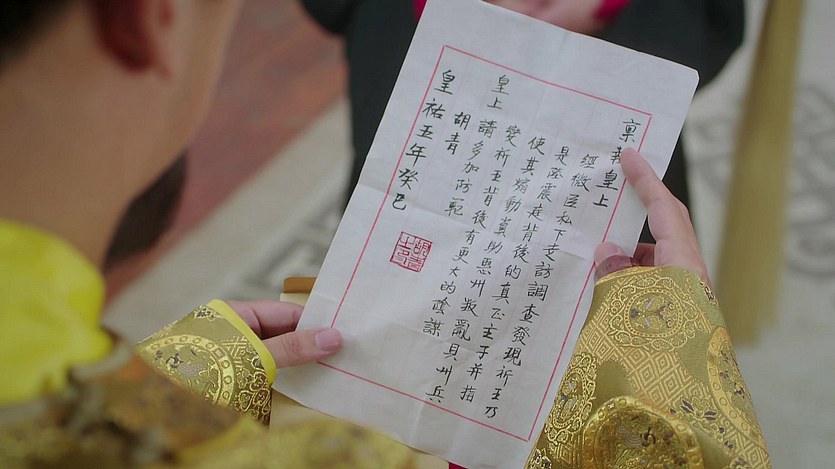 稟報皇上
經微臣私下走訪調查發現祈王乃
是陸震庭背後的真正主子并指
使其煽動資助惡州叛亂貝州兵
變祈王背後有更大的陰謀
皇上請多加防範
胡青
皇祐五年癸巳